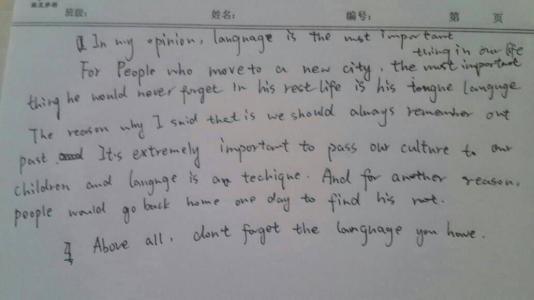 英文多格
班级: 姓名: 编号: 第 页
In my opinion, language is the most important
thing in our life
For People who move to a new city, the most important
thing he would never forget in his rest life is his tongue languge
The reason why I said that is we should always remember out
past. It's extremely important to pass our culture to our
children and langnge is an techique. And for another reason,
people would go back home one day to find his root.
Above all, don't foget the language you have.